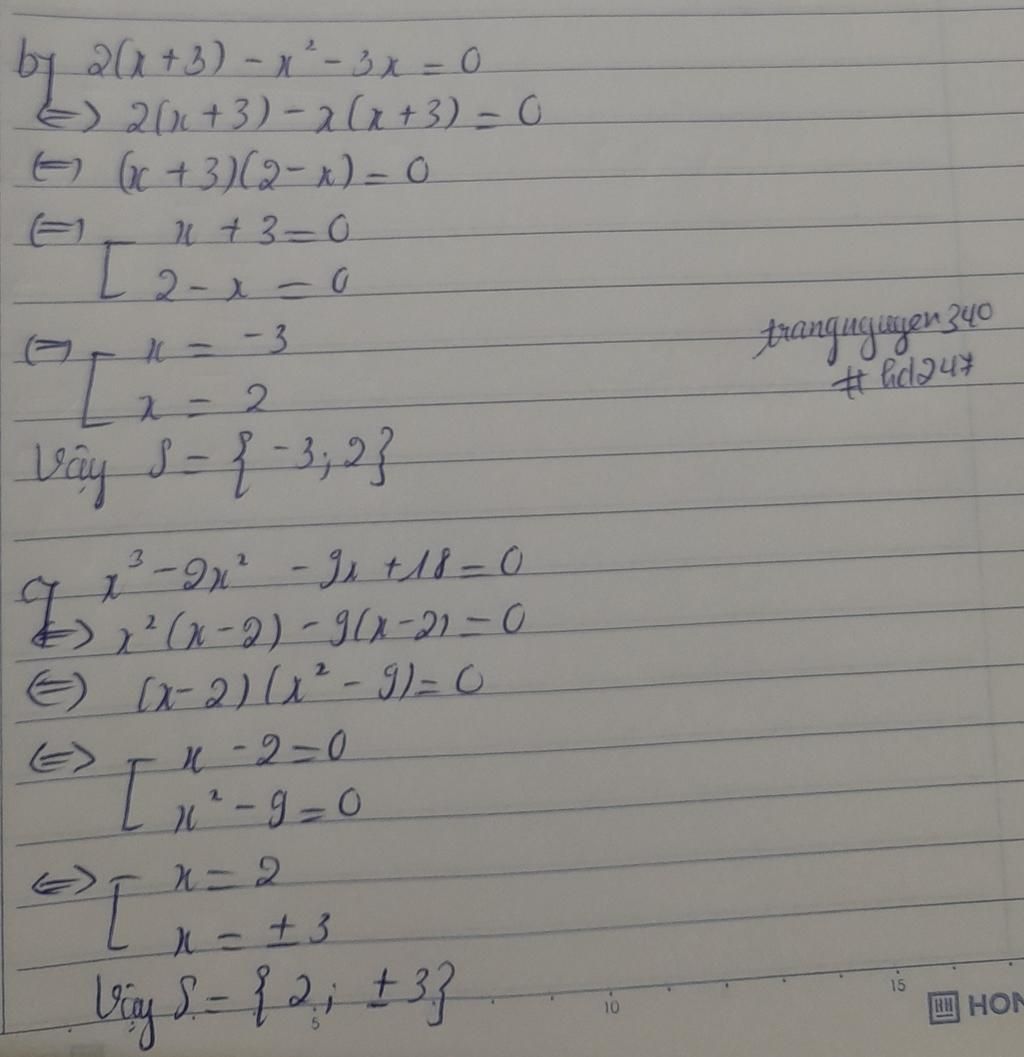 b) 2(x+3) - x² - 3x = 0
<=> 2(x+3) - x(x+3) = 0
<=> (x+3)(2-x) = 0
<=> [ x + 3 = 0
2 - x = 0
<=> [ x = -3
x = 2
trangnguyen340
#hd247
Vậy S = { -3; 2}
c) x³ - 2x² - 9x + 18 = 0
<=> x²(x-2) - 9(x-2) = 0
<=> (x-2)(x² - 9) = 0
<=> [ x - 2 = 0
x² - 9 = 0
<=> [ x = 2
x = ±3
Vậy S = { 2; ±3}
5 10 15
HON